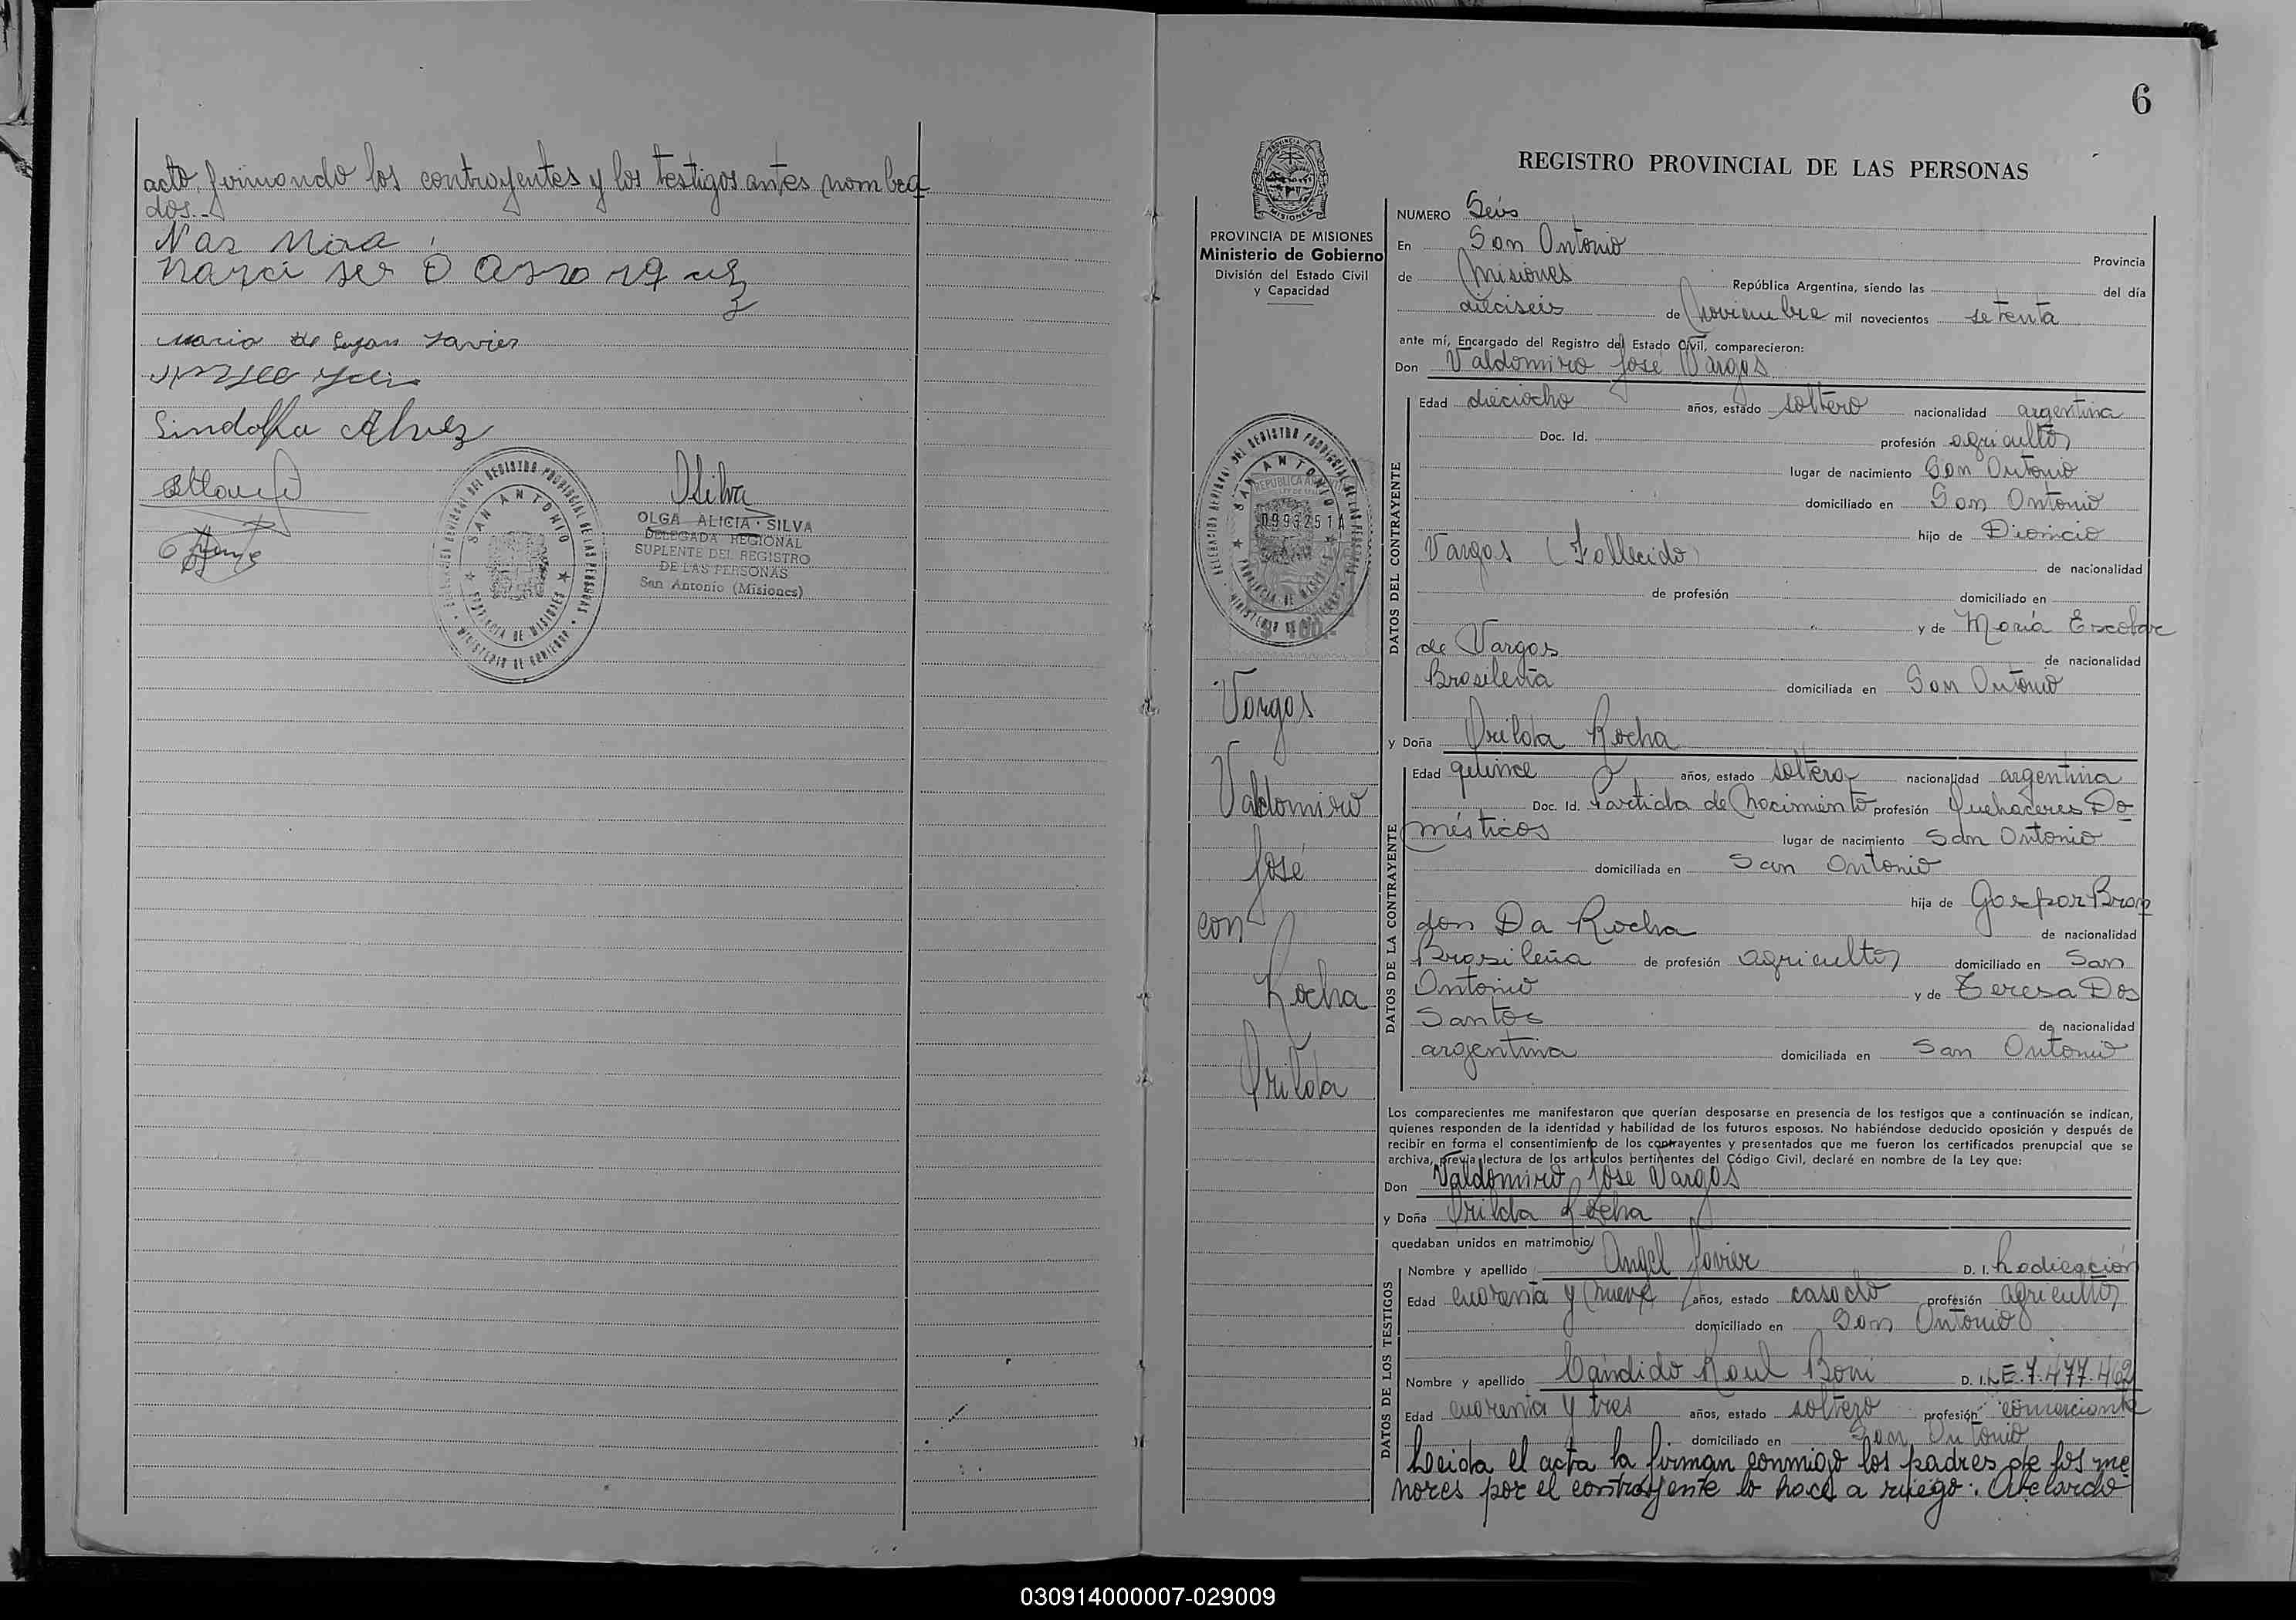 acto, firmando los contrayentes y los testigos antes nombra
dos.-
Maria de Lujan Javier
Sindolfa Alvez
OSilva
OLGA ALICIA SILVA
DELEGADA REGIONAL
SUPLENTE DEL REGISTRO
DE LAS PERSONAS
San Antonio (Misiones)
DELEGACION REGIONAL DEL REGISTRO PROVINCIAL DE LAS PERSONAS
SAN ANTONIO
PROVINCIA DE MISIONES
MINISTERIO DE GOBIERNO
6
PROVINCIA DE MISIONES
Ministerio de Gobierno
División del Estado Civil
y Capacidad
DELEGACION REGIONAL DEL REGISTRO PROVINCIAL DE LAS PERSONAS
SAN ANTONIO
REPUBLICA
0993251A
PROVINCIA DE MISIONES
MINISTERIO DE GOBIERNO
$ 400.-
Vargas
Valdomiro
José
con
Rocha
Orilda
REGISTRO PROVINCIAL DE LAS PERSONAS
NUMERO Seis
En San Antonio Provincia
de Misiones República Argentina, siendo las del día
dieciseis de Noviembre mil novecientos setenta
ante mí, Encargado del Registro del Estado Civil, comparecieron:
Don Valdomiro José Vargas
DATOS DEL CONTRAYENTE
Edad dieciocho años, estado soltero nacionalidad argentina
Doc. Id. profesión agricultor
lugar de nacimiento San Antonio
domiciliado en San Antonio
hijo de Dionicio
Vargas (Fallecido) de nacionalidad
de profesión domiciliado en
y de María Escobar
de Vargas de nacionalidad
Brasileña domiciliada en San Antonio
y Doña Orilda Rocha
DATOS DE LA CONTRAYENTE
Edad quince años, estado soltera nacionalidad argentina
Doc. Id. Partida de Nacimiento profesión Quehaceres Do
mésticos lugar de nacimiento San Antonio
domiciliada en San Antonio
hija de Gaspar Bran
don Da Rocha de nacionalidad
Brasileña de profesión agricultor domiciliado en San
Antonio y de Teresa Dos
Santos de nacionalidad
argentina domiciliada en San Antonio
Los comparecientes me manifestaron que querían desposarse en presencia de los testigos que a continuación se indican,
quienes responden de la identidad y habilidad de los futuros esposos. No habiéndose deducido oposición y después de
recibir en forma el consentimiento de los contrayentes y presentados que me fueron los certificados prenupcial que se
archiva, previa lectura de los artículos pertinentes del Código Civil, declaré en nombre de la Ley que:
Don Valdomiro José Vargas
y Doña Orilda Rocha
quedaban unidos en matrimonio
DATOS DE LOS TESTIGOS
Nombre y apellido Angel Javier D. I. Radicación
Edad cuarenta y nueve años, estado casado profesión agricultor
domiciliado en San Antonio
Nombre y apellido Cándido Raul Boni D. I. LE. 7.477.462
Edad cuarenta y tres años, estado soltero profesión comerciante
domiciliado en San Antonio
Leida el acta la firman conmigo los padres de los me
nores por el contrayente lo hace a ruego: Abelardo
030914000007-029009